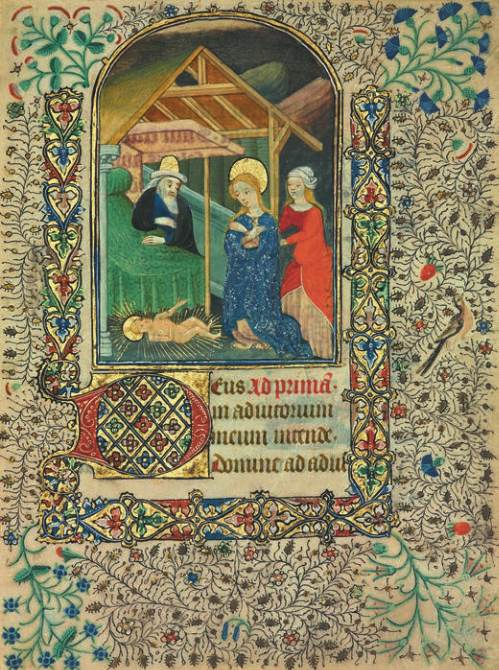 DEus Ad primā.
in adiutorium
meum intende.
Domine ad adiu